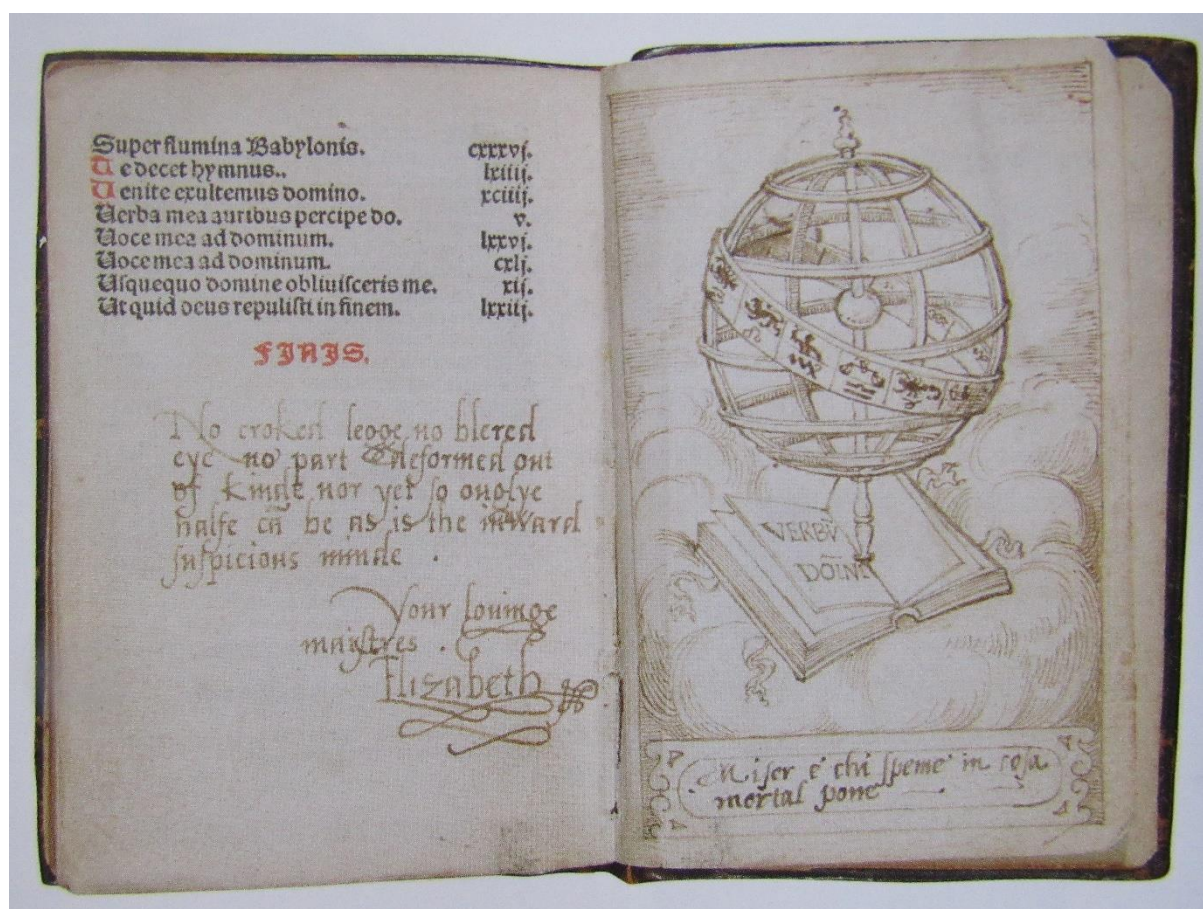 Super flumina Babylonis. cxxxvj.
Te decet hymnus.. lxiiij.
Venite exultemus domino. xciiij.
Verba mea auribus percipe do. v.
Uoce mea ad dominum. lxxvj.
Uoce mea ad dominum. cxlj.
Usquequo domine obliuisceris me. xij.
Ut quid deus repulisti in finem. lxxiij.
FINIS.
No croked legge no blered
eye no part deformed out
of kinde nor yet so ouglye
halfe cā be as is the inward
suspicious minde .
Your louinge
maistres .
Elizabeth
VERBŪ
DOÏNI
Miser è chi speme in cosa
mortal pone